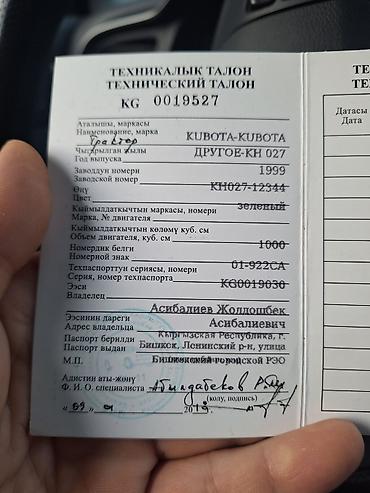 ТЕХНИКАЛЫК ТАЛОН
ТЕХНИЧЕСКИЙ ТАЛОН
KG 0019527
Аталышы, маркасы
Наименование, марка KUBOTA-KUBOTA
Трактор
Чыгарылган жылы ДРУГОЕ-KH 027
Год выпуска
Заводдун номери 1999
Заводской номер
Өңү KH027-12344
Цвет
Кыймылдаткычтын маркасы, номери зеленый
Марка, № двигателя
Кыймылдаткычтын көлөмү куб. см
Объем двигателя, куб. см
Номердик белги 1000
Номерной знак
Техпаспорттун сериясы, номери 01-922CA
Серия, номер техпаспорта
Ээси KG0019030
Владелец
Асибалиев Жолдошбек
Ээсинин дареги Асибалиевич
Адрес владельца
Паспорт берилди Кыргызская Республика, г.
Паспорт выдан Бишкек, Ленинский р-н, улица
М.П. Бишкекский городской РЭО
Адистин аты-жөнү
Ф. И. О. специалиста
(колу, подпись)
ТЕ
ТЕ
Датасы
Дата